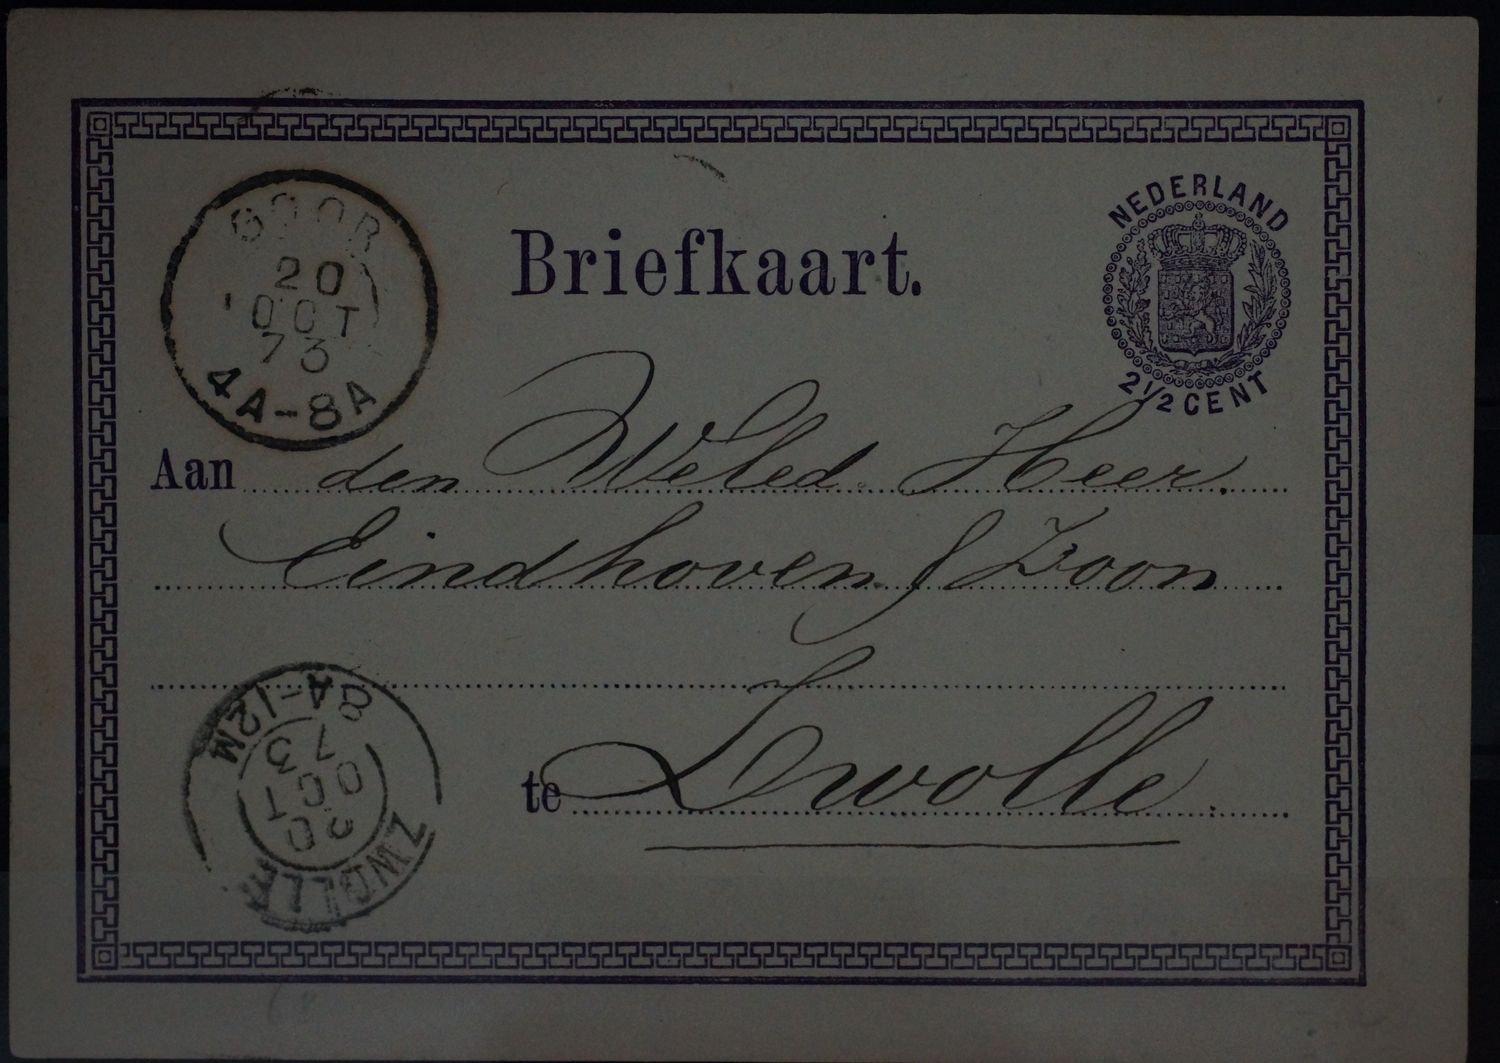 GOOR
20
OCT
73
4A-8A
Briefkaart.
NEDERLAND
2 1/2 CENT
Aan den Weled. Heer.
Eindhoven & Zoon
te Zwolle.
8A-12M
73
OCT
20
ZWOLLE